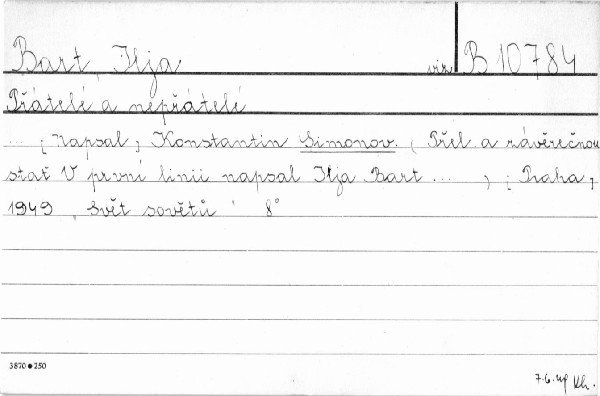 Bart, Ilja viz B 10784
Přátelé a nepřátelé
... [Napsal] Konstantin Simonov. (Přel. a závěrečnou
stať V první linii napsal Ilja Bart ... ) [Praha,
1949 Svět sovětů 8°
3870 • 250
7.6.49 Kh.